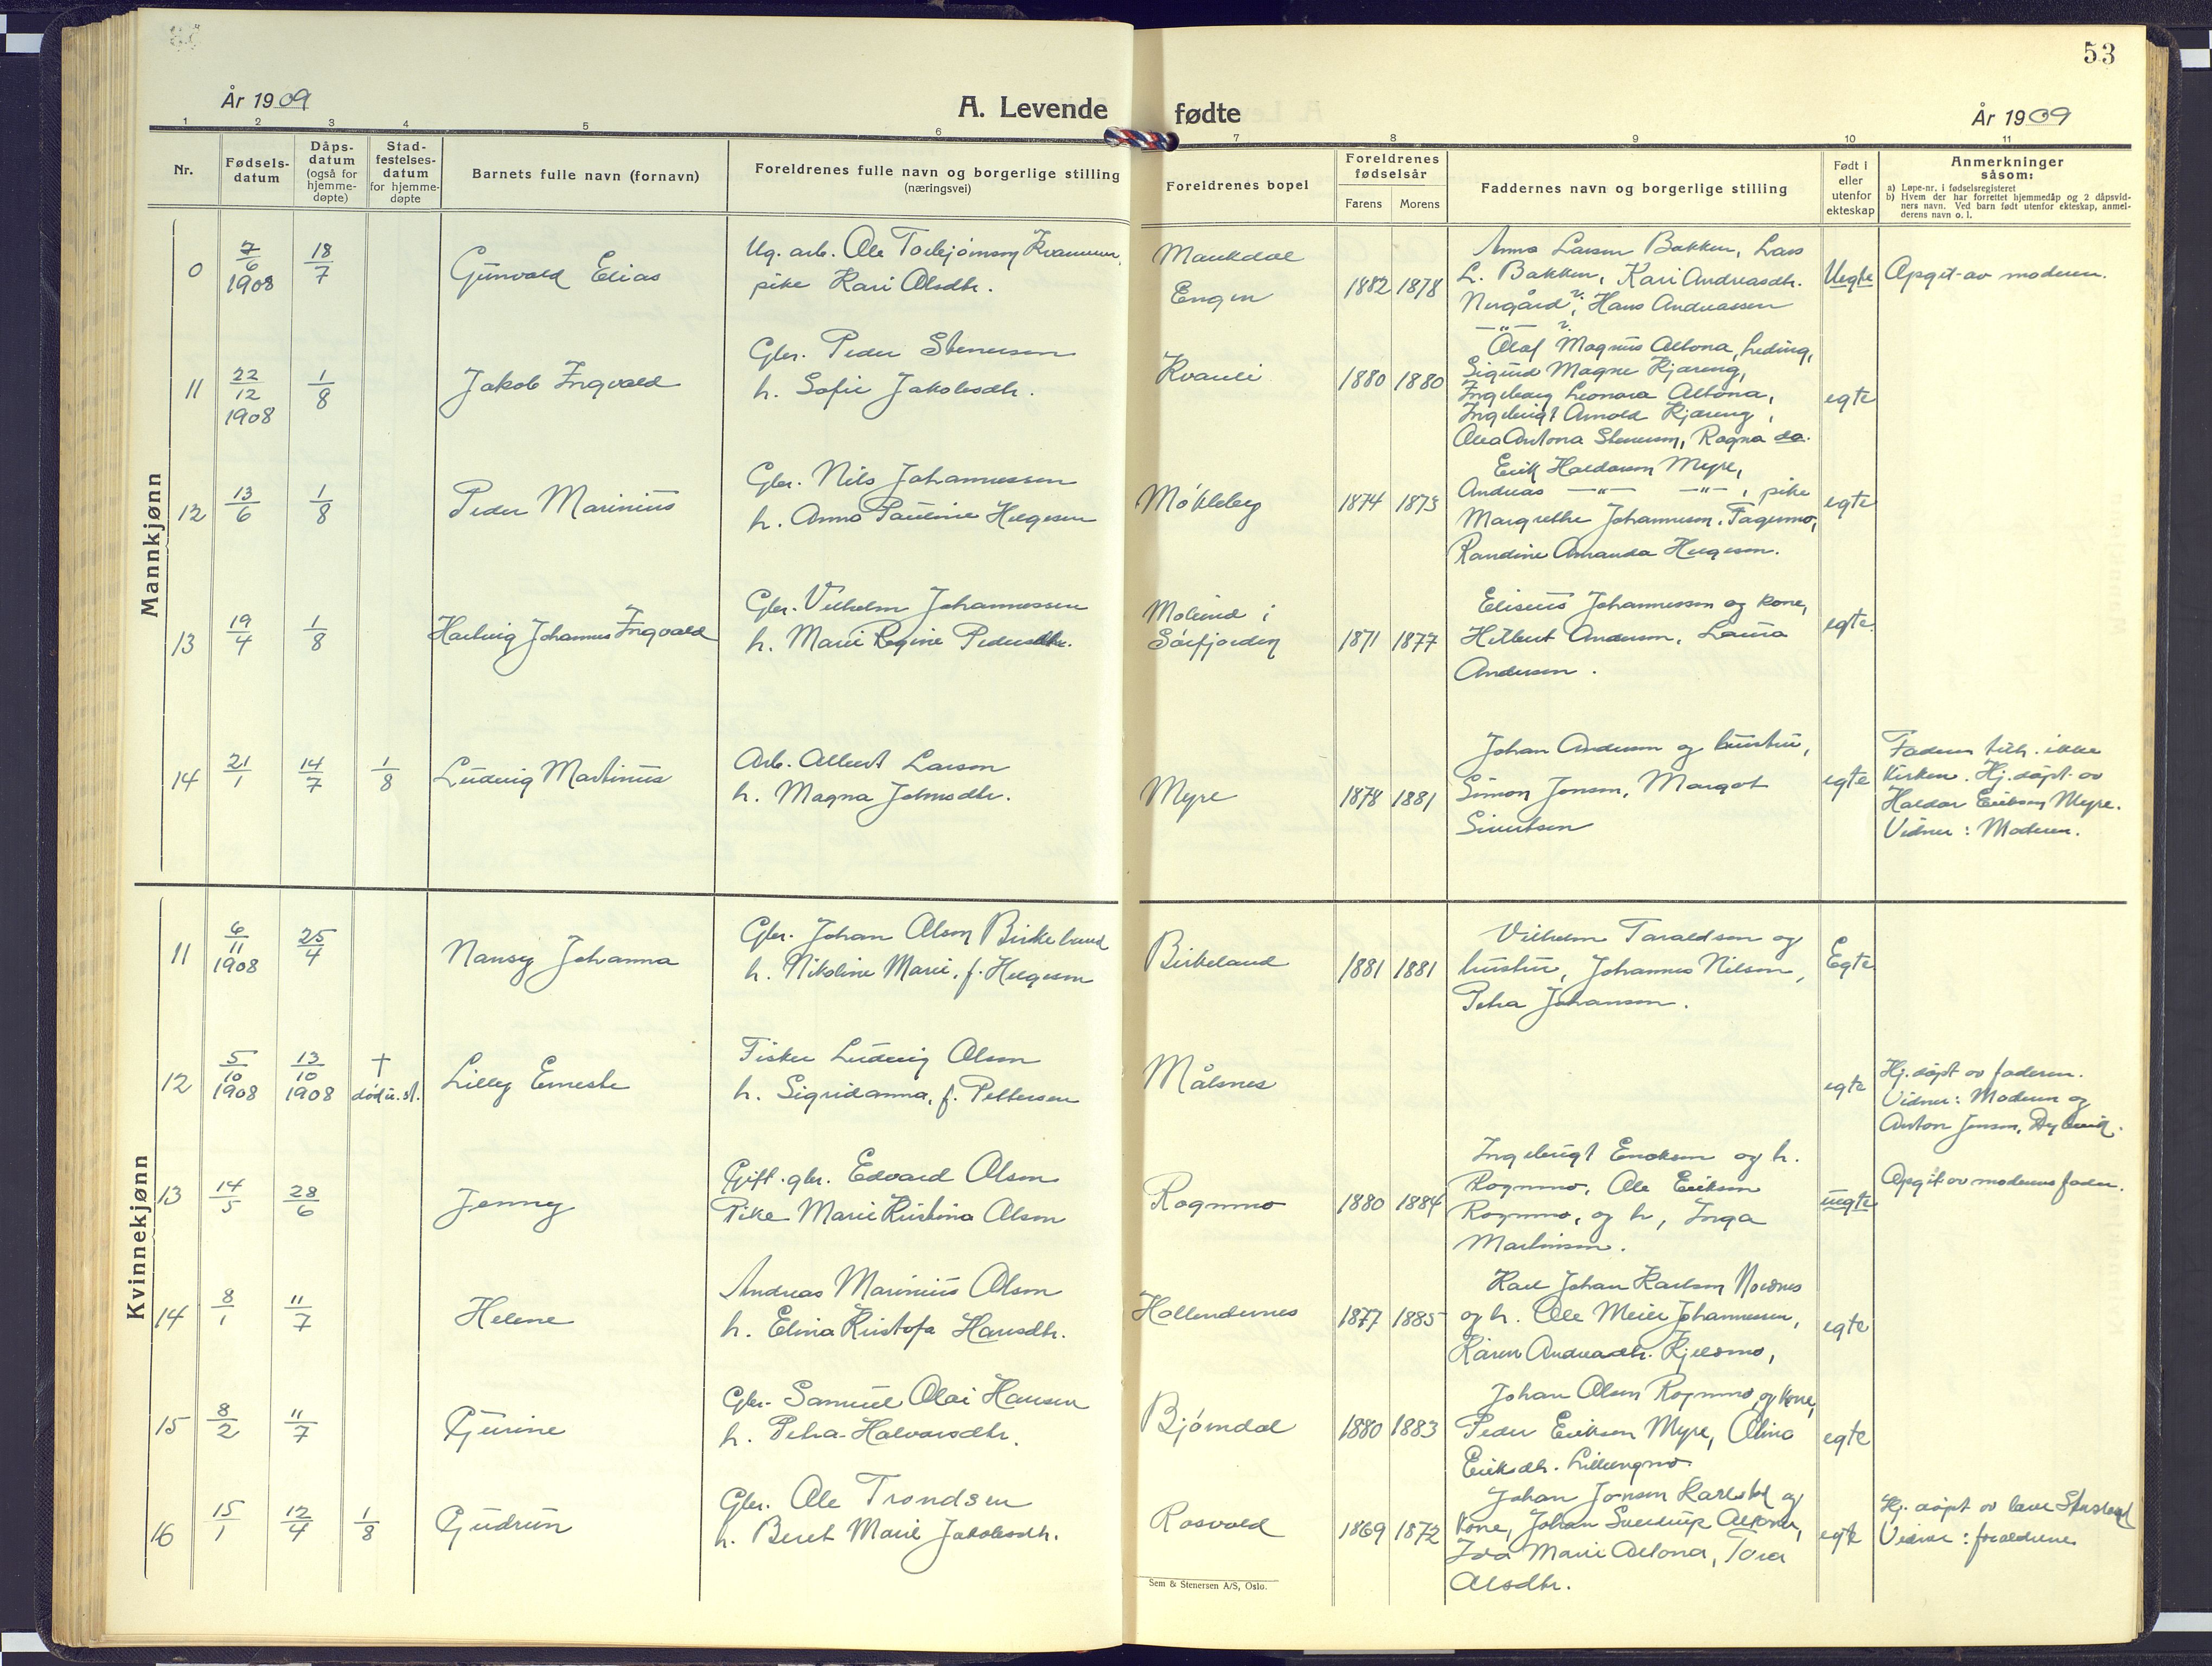 53
År 1909
A. Levende fødte
År 1909
1 2 3 4 5 6 7 8 9 10 11
Nr.
Fødsels-
datum
Dåps-
datum
(også for
hjemme-
døpte)
Stad-
festelses-
datum
for hjemme-
døpte
Barnets fulle navn (fornavn)
Foreldrenes fulle navn og borgerlige stilling
(næringsvei)
Foreldrenes bopel
Foreldrenes
fødselsår
Farens Morens
Faddernes navn og borgerlige stilling
Født i
eller
utenfor
ekteskap
Anmerkninger
såsom:
a) Løpe-nr. i fødselsregisteret
b) Hvem der har forrettet hjemmedåp og 2 dåpsvid-
ners navn. Ved barn født utenfor ekteskap, anmel-
derens navn o. l.
Mannkjønn
0
7/6
1908
18/7
Gunvald Elias
Ug. arb. Ole Torbjørnsen Kvammen,
pike Kari Olsdtr.
Maukdal
Engen
1882 1878
Anna Larsen Bakken, Lars
L. Bakken, Kari Andreasdtr.
Nergård, Hans Andreassen
—"—
Uegte
Opgit av moderen.
11
22/12
1908
1/8
Jakob Ingvald
Gbr. Peder Stenersen
h. Sofie Jakobsdtr.
Kvanli
1880 1880
Olaf Magnus Altona,
Sigurd Magne Kjæreng,
Ingeborg Leonora Altona,
Ingebrigt Arnold Kjæreng,
Olea Antona Stenersen, Ragna do.
egte
12
13/6
1/8
Peder Marinius
Gbr. Nils Johannessen
h. Anna Pauline Helgesen
Møkleby
1874 1873
Erik Haldorsen Myre,
Andreas —"— —"—, pike
Margrethe Johannesen, Fagermo,
Randine Amanda Helgesen.
egte
13
19/4
1/8
Hartvig Johannes Ingvald
Gbr. Vilhelm Johannessen
h. Marie Regine Pedersdtr.
Molund i
Sørfjorden
1871 1877
Eliseus Johannessen og kone,
Andersen, Laura
Andersen.
egte.
14
21/1
14/7
1/8
Ludvig Martinius
Arb. Albert Larsen
h. Magna Johnsdtr.
Myre
1878 1881
Johan Andersen og hustru,
Simon Jensen, Margot
Sivertsen
egte
Faderen tilh. ikke
kirken. Hj.døpt av
Haldor Eriksen Myre.
Vidner: Moderen.
Kvinnekjønn
11
6/11
1908
25/4
Nansy Johanna
Gbr. Johan Olsen Birkeland
h. Nikoline Marie, f. Helgesen
Birkeland
1881 1881
Vilhelm Taraldsen og
hustru, Johannes Nilsen,
Petra Johansen.
Egte
12
5/10
1908
13/10
1908
†
død u. st.
Lilly Erneste
Fisker Ludvig Olsen
h. Sigridanna, f. Pettersen
Målsnes
egte
Hj. døpt av faderen.
Vidner: Moderen og
Anton Jensen,
13
14/5
28/6
Jenny
Gift. gbr. Edvard Olsen
Pike Marie Kristina Olsen
Rognmo
1880 1884
Ingebrigt Enoksen og h.
Rognmo, Ole Eriksen
Rognmo, og h, Inga
Martinsen.
uegte
Opgit av moderens fader.
14
8/1
11/7
Helene
Andreas Marinius Olsen
h. Elina Kristofa Hansdtr.
Hollendernes
1877 1885
Karl Johan Karlsen Nordnes
og h. Ole Meier Johannessen,
Karen Andreasdtr. Kjeldmo,
egte
15
8/2
11/7
Gurine
Gbr. Samuel Olai Hansen
h. Petra Halvorsdtr.
Bjørndal
1880 1883
Johan Olsen Rognmo, og kone,
Peder Eriksen Myre, Olina
Eriksdtr. Lillengmo
egte
16
15/1
12/4
1/8
Gudrun
Gbr. Ole Trondsen
h. Beret Marie Jakobsdtr.
Rosvold
1869 1872
Johan Jonsen Karlstad og
kone, Johan Sverdrup Altona,
Ida Marie Altona, Tora
Olsdtr.
egte
Hj. døpt av
Vidner: foreldrene
Sem & Stenersen A/S, Oslo.